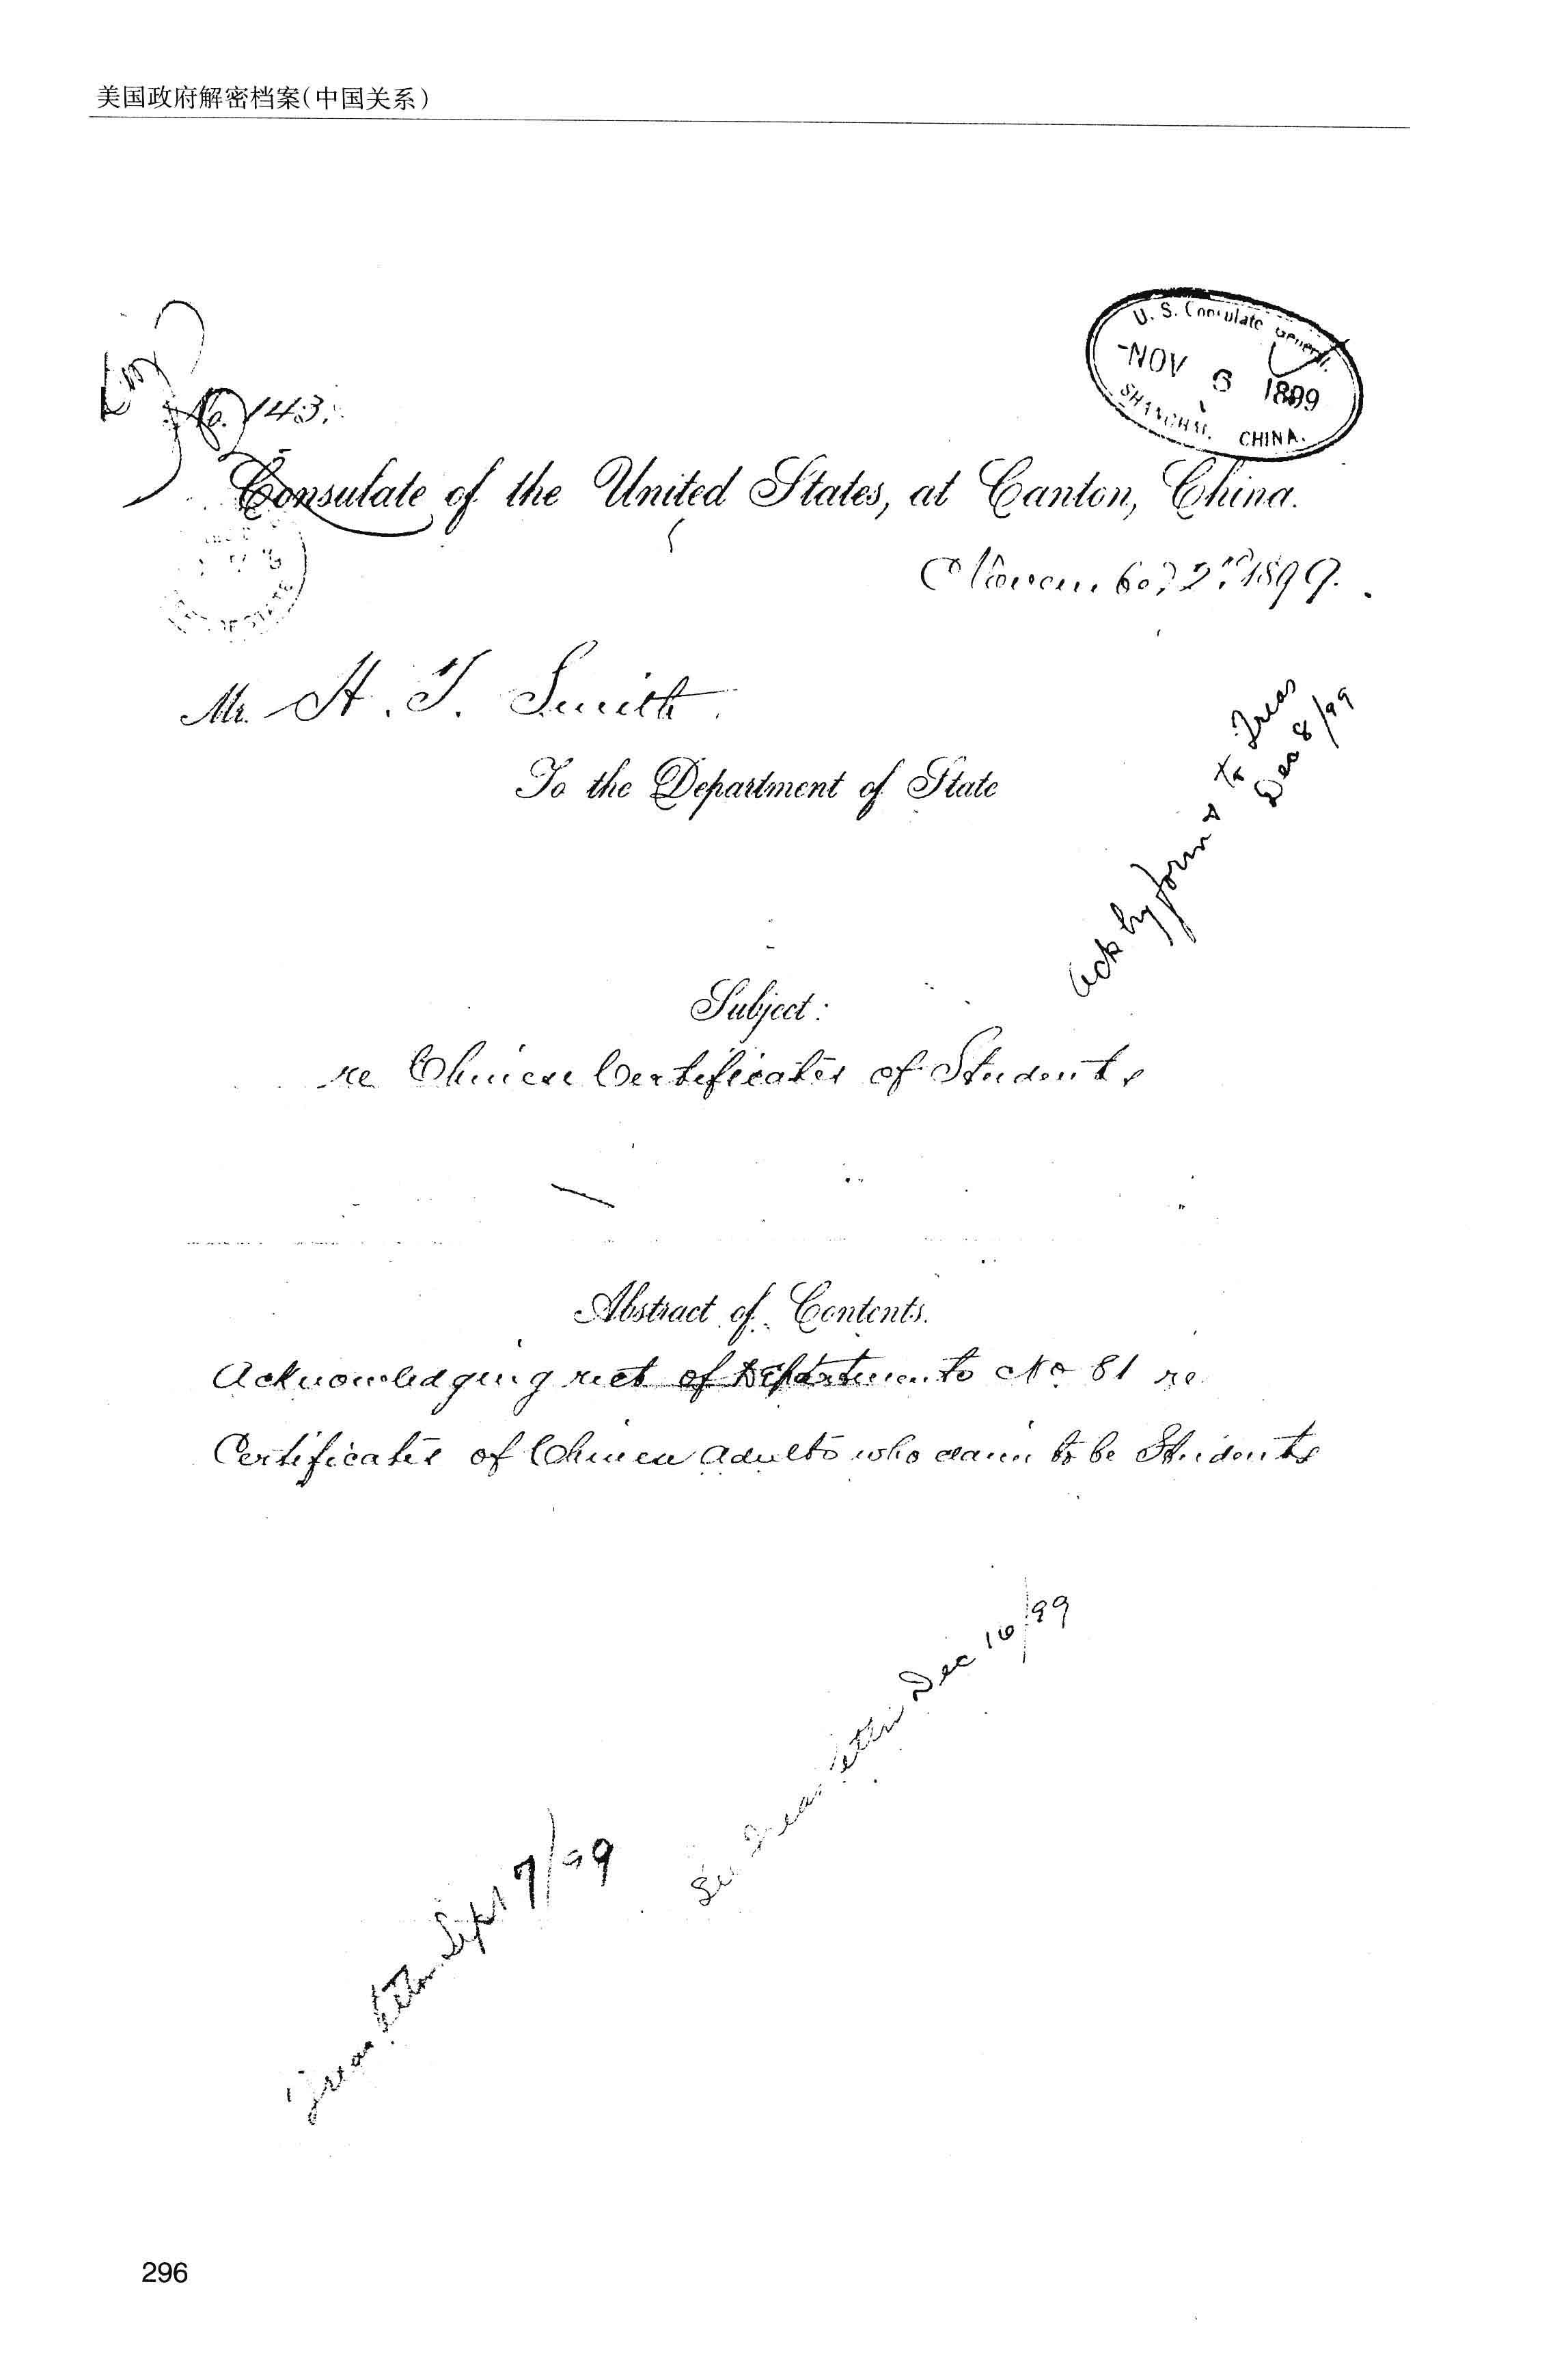 美国政府解密档案(中国关系)
U. S. Consulate General.
-NOV 6 1899
SHANGHAI, CHINA.
No. 143.
Consulate of the United States, at Canton, China.
November 2nd 1899.
Mr. H. T. Smith
To the Department of State
Ack by form & to Treas
Dec 8/99
Subject:
re Chinese Certificates of Students
Abstract of Contents.
Acknowledging rect of Departments No 81 re
Certificates of Chinese adults who claim to be Students
See Treas letter Dec 16/99
Treas letter Sept 7/99
296